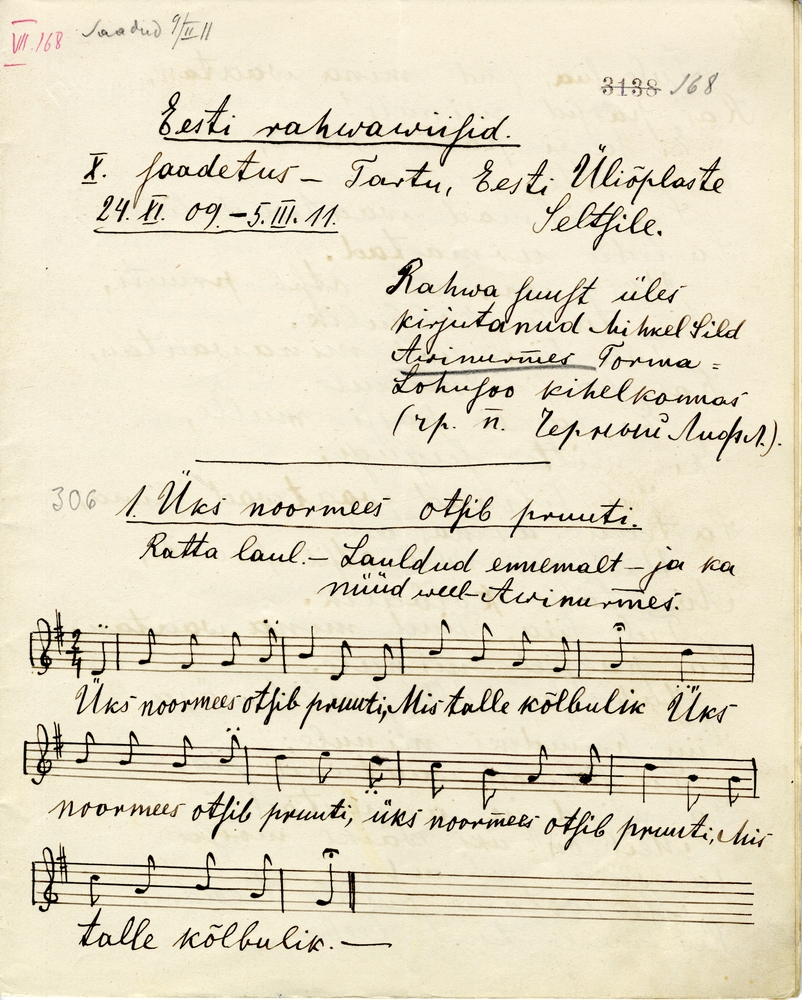 VII.168 Saadud 9/II 11
3138 168
Eesti rahwawiisid.
X. saadetus – Tartu, Eesti Üliõplaste
24. XI. 09. – 5. III. 11. Seltsile.
Rahwa suust üles
kirjutanud Mihkel Sild
Awinurm̄es Torma =
Lohusoo kihelkonnas
(гр. п. Черный Лифл.).
306 1. Üks noormees otsib pruuti.
Ratta laul. – Lauldud ennemalt – ja ka
nüüd weel Awinurm̄es.
2/4
Üks noormees otsib pruuti, Mis talle kõlbulik Üks
noormees otsib pruuti, üks noorm̄ees otsib pruuti, Mis
talle kõlbulik. —